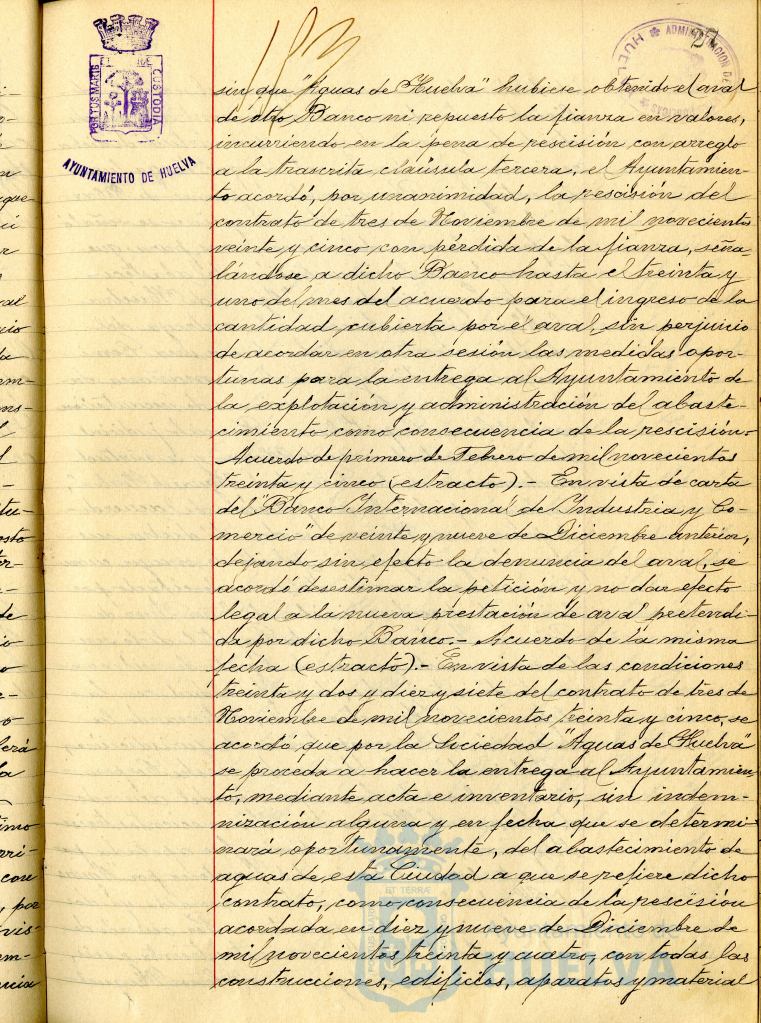 27
PORTUS MARIS ET TERRE CUSTODIA
AYUNTAMIENTO DE HUELVA
ADMINISTRACION DE
HUELVA
sin que "Aguas de Huelva" hubiese obtenido el aval
de otro Banco ni repuesto la fianza en valores,
incurriendo en la pena de rescisión con arreglo
a la trascrita cláusula tercera, el Ayuntamien-
to acordó, por unanimidad, la rescisión del
contrato de tres de Noviembre de mil novecientos
veinte y cinco con pérdida de la fianza, seña-
lándose a dicho Banco hasta el treinta y
uno del mes del acuerdo para el ingreso de la
cantidad cubierta por el aval, sin perjuicio
de acordar en otra sesión las medidas opor-
tunas para la entrega al Ayuntamiento de
la explotación y administración del abaste-
cimiento como consecuencia de la rescisión.-
Acuerdo de primero de Febrero de mil novecientos
treinta y cinco (estracto).- En vista de carta
del "Banco Internacional de Industria y Co-
mercio" de veinte y nueve de Diciembre anterior,
dejando sin efecto la denuncia del aval, se
acordó desestimar la petición y no dar efecto
legal a la nueva prestación de aval pretendi-
da por dicho Banco.- Acuerdo de la misma
fecha (estracto).- En vista de las condiciones
treinta y dos y diez y siete del contrato de tres de
Noviembre de mil novecientos treinta y cinco, se
acordó que por la Sociedad "Aguas de Huelva"
se proceda a hacer la entrega al Ayuntamien-
to, mediante acta e inventario, sin indem-
nización alguna y en fecha que se determi-
nará oportunamente, del abastecimiento de
aguas de esta Ciudad a que se refiere dicho
contrato, como consecuencia de la rescisión
acordada en diez y nueve de Diciembre de
mil novecientos treinta y cuatro, con todas las
construcciones, edificios, aparatos y material
Ayuntamiento de
HUELVA